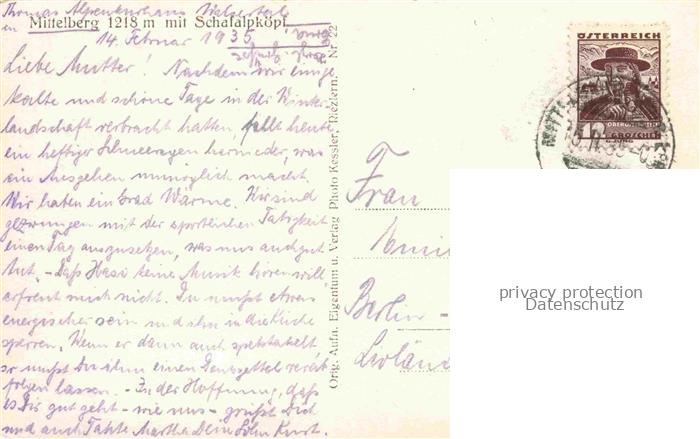 Thomas Alpenkurhaus Walsertal
in Mittelberg 1218 m mit Schafalpköpf
14. Februar 1935.
Liebe Mutter! Nachdem wir einige
kalte und schöne Tage in der Winter
landschaft verbracht hatten, fällt heute
ein heftiger Schneeregen hernieder, was
ein Ausgehen unmöglich macht.
Wir haben ein Grad Wärme. Wir sind
gezwungen mit der sportlichen Tätigkeit
einen Tag auszusetzen, was uns auch gut
tut. - Daß Hasi keine Musik hören will
erfreut mich nicht. Du mußt etwas
energischer sein und ihn in die Küche
sperren. Wenn er dann auch spektakelt
so mußt Du ihm einen Denkzettel verab
folgen lassen. - In der Hoffnung, daß
es Dir gut geht - wie uns - grüßt Dich
und auch Tante Martha Dein Sohn Kurt.
Orig.-Aufn. Eigentum u. Verlag Photo Kessler, Riezlern. Nr. 22
ÖSTERREICH
GROSCHEN
Frau
Berlin -
Livländ
privacy protection
Datenschutz